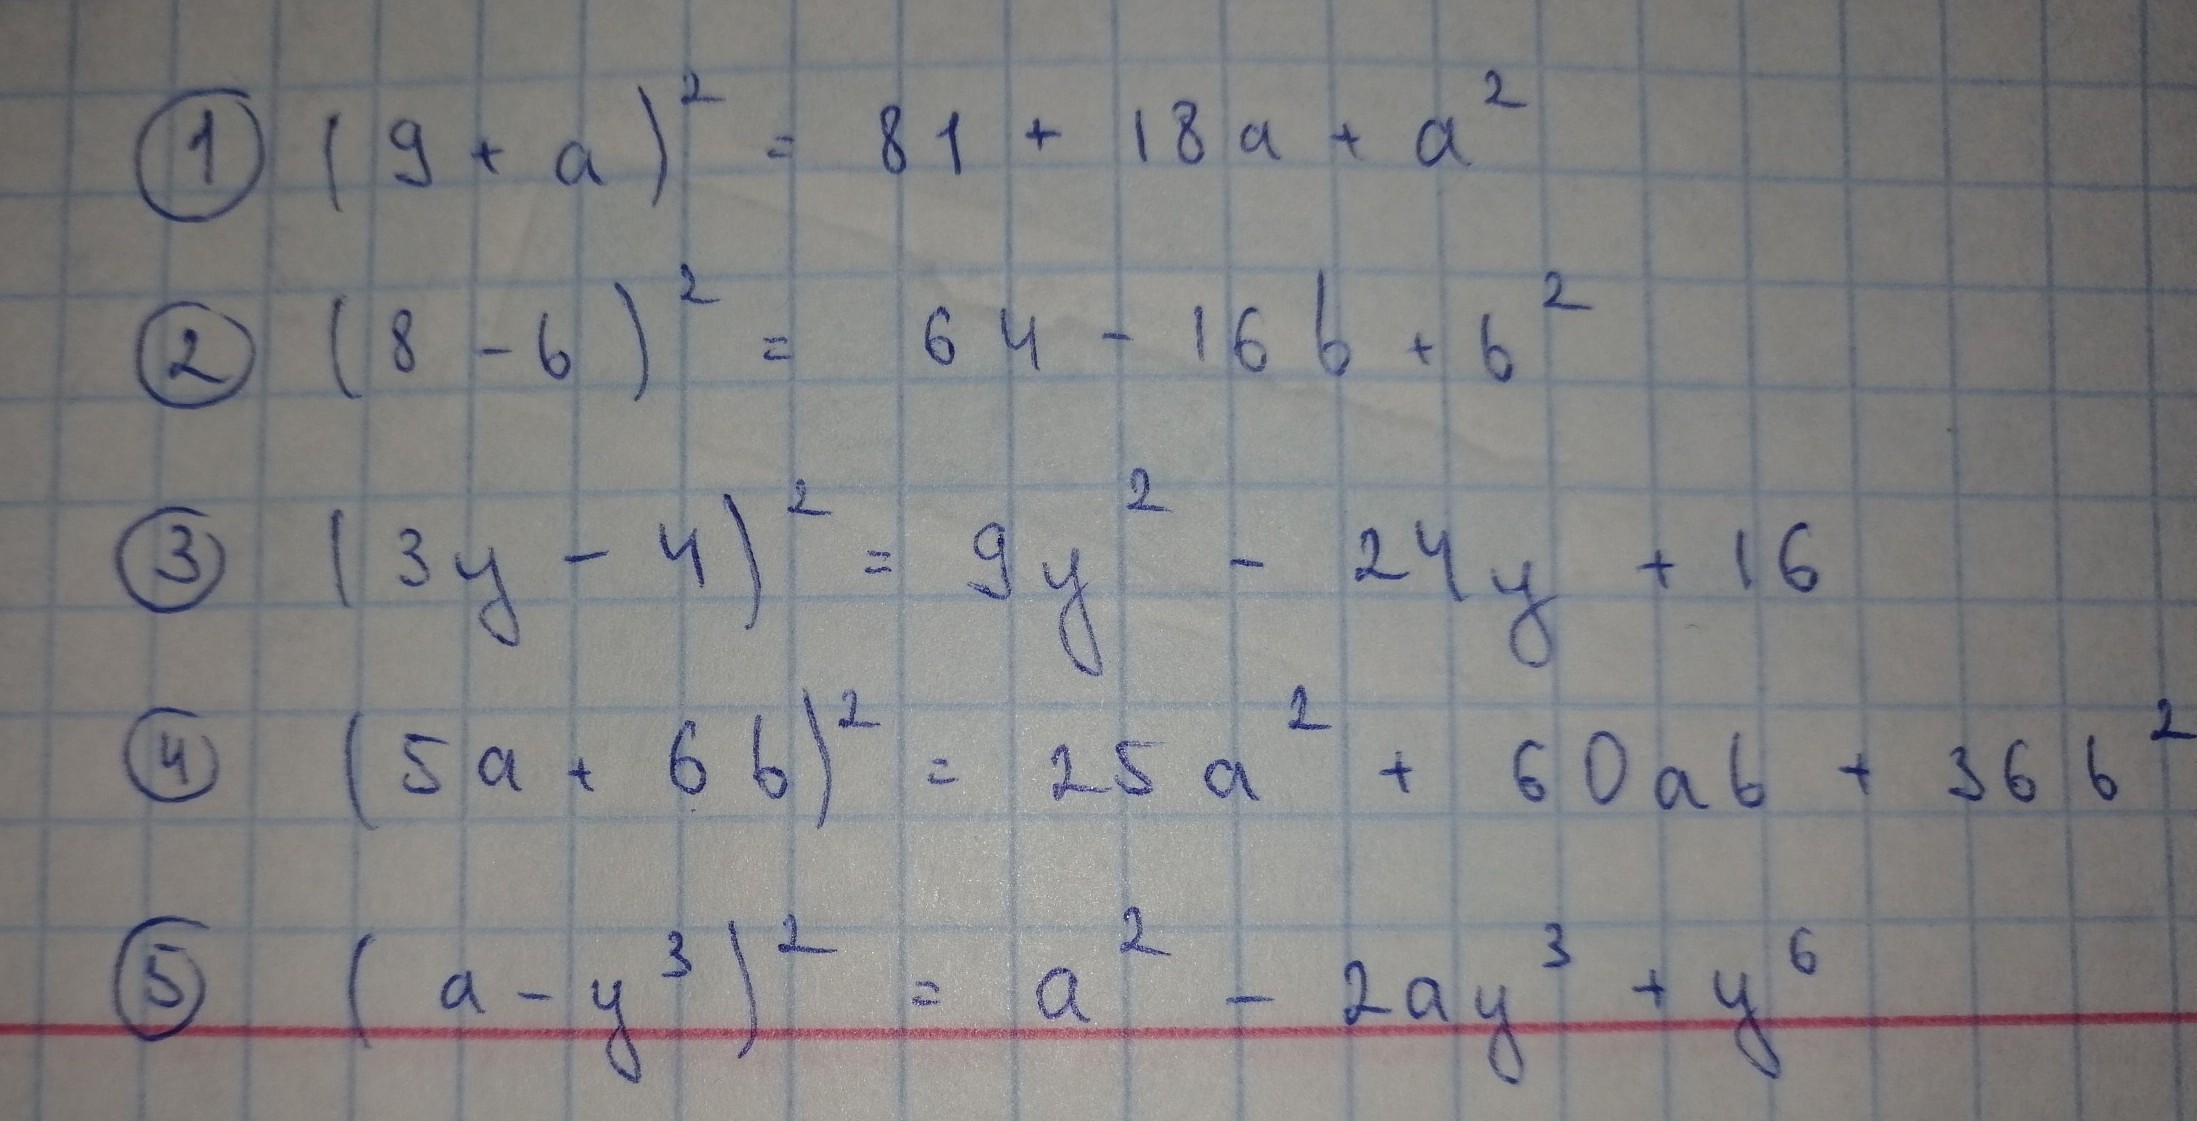 ① (9 + a)² = 81 + 18a + a²
② (8 - b)² = 64 - 16b + b²
③ (3y - 4)² = 9y² - 24y + 16
④ (5a + 6b)² = 25a² + 60ab + 36b²
⑤ (a - y³)² = a² - 2ay³ + y⁶